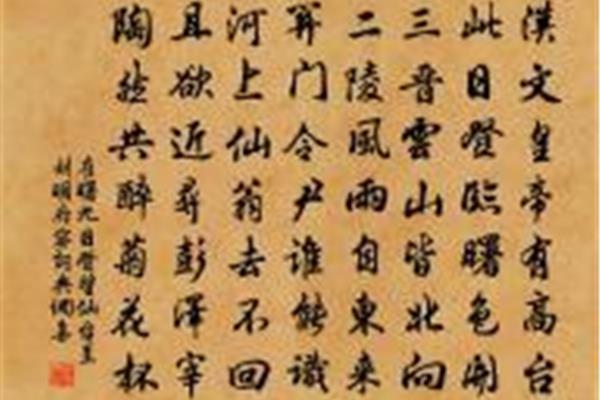 漢文皇帝有高台
此日登臨曙色開
三晉雲山皆北向
二陵風雨自東來
關門令尹誰能識
河上仙翁去不回
且欲近尋彭澤宰
陶然共醉菊花杯
崔曙九日登望仙台呈
劉明府容詞典網